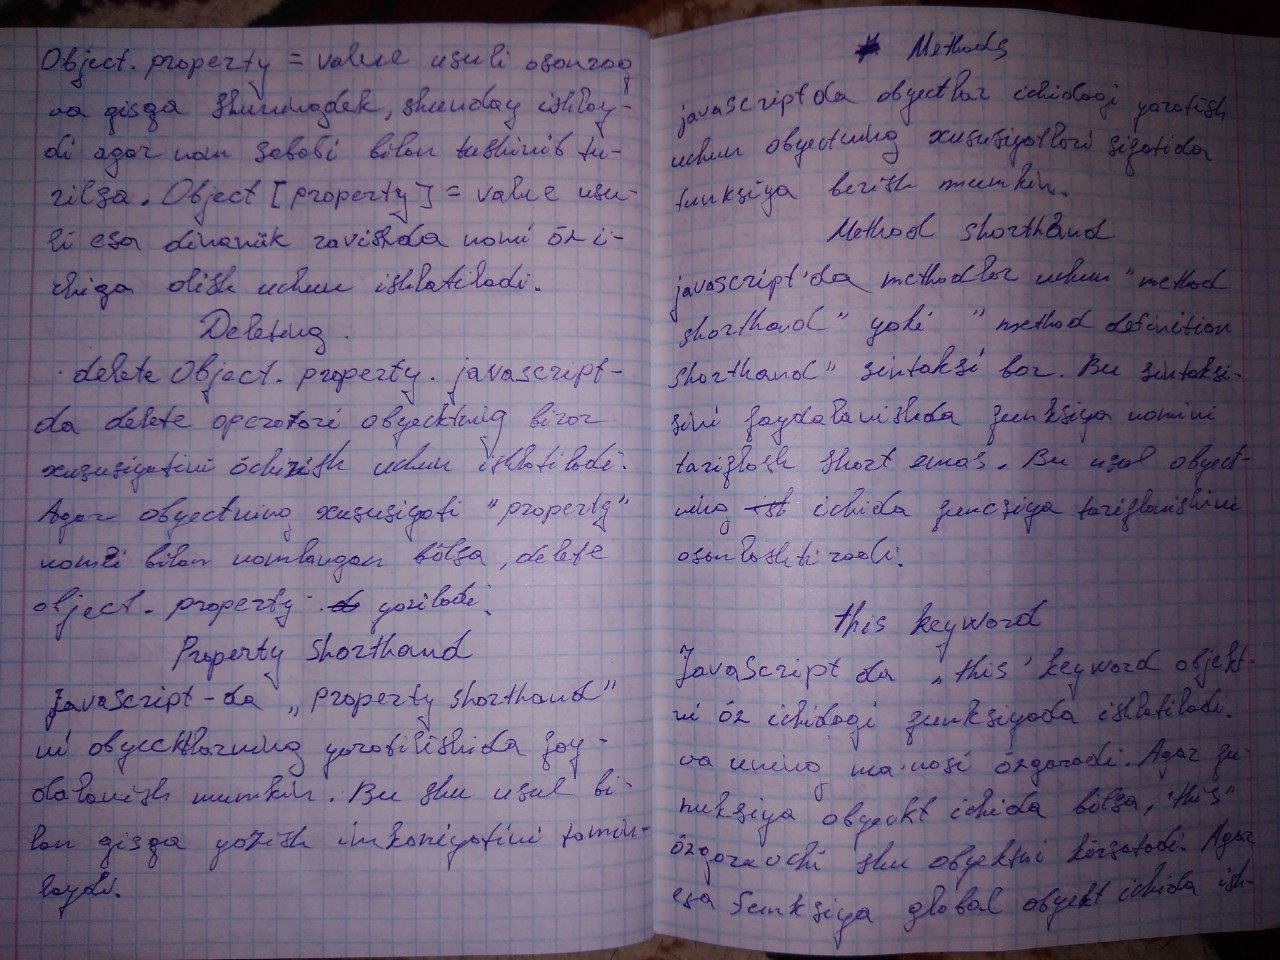 Object.property = value usuli osonroq
va qisqa shuningdek, shunday ishlay-
di agar nom sababi bilan tushinib tu-
rilsa. Object [property] = value usu-
li esa dinamik ravishda nomi öz i-
chiga olish uchun ishlatiladi.
Deleting.
delete Object.property. javascript-
da delete operatori obyecktnig biror
xususiyatini öchirish uchun ishlatiladi.
Agar obyectning xususiyati "property"
nomi bilan nomlangan bölsa, delete
object.property yoziladi.
Property Shorthand
JavaScript-da „property shorthand"
ni obyecktlarning yaratilishida foy-
dalanish mumkin. Bu shu usul bi-
lan qisqa yozish imkoniyatini tamin-
laydi.
Methods
javascriptda obyectlar ichidagi yaratish
uchun obyectning xususiyatlari sifatida
funksiya berish mumkin.
Method shorthand
javascript'da methodlar uchun "method
shorthand" yoki "method definition
shorthand" sintaksi bor. Bu sintaksi-
sini foydalanishda funksiya nomini
tariflash short emas. Bu usul obyect-
ning ichida funcsiya tariflanishini
osonlashtiradi.
this keyword
JavaScript da „this' keyword objekt-
ni öz ichidagi funksiyada ishlatiladi.
va uning ma'nosi özgaradi. Agar fu-
nuksiya obyekt ichida bölsa, "this"
özgaruvchi shu obyektni körsatadi. Agar
esa funksiya global obyekt ichida ish-